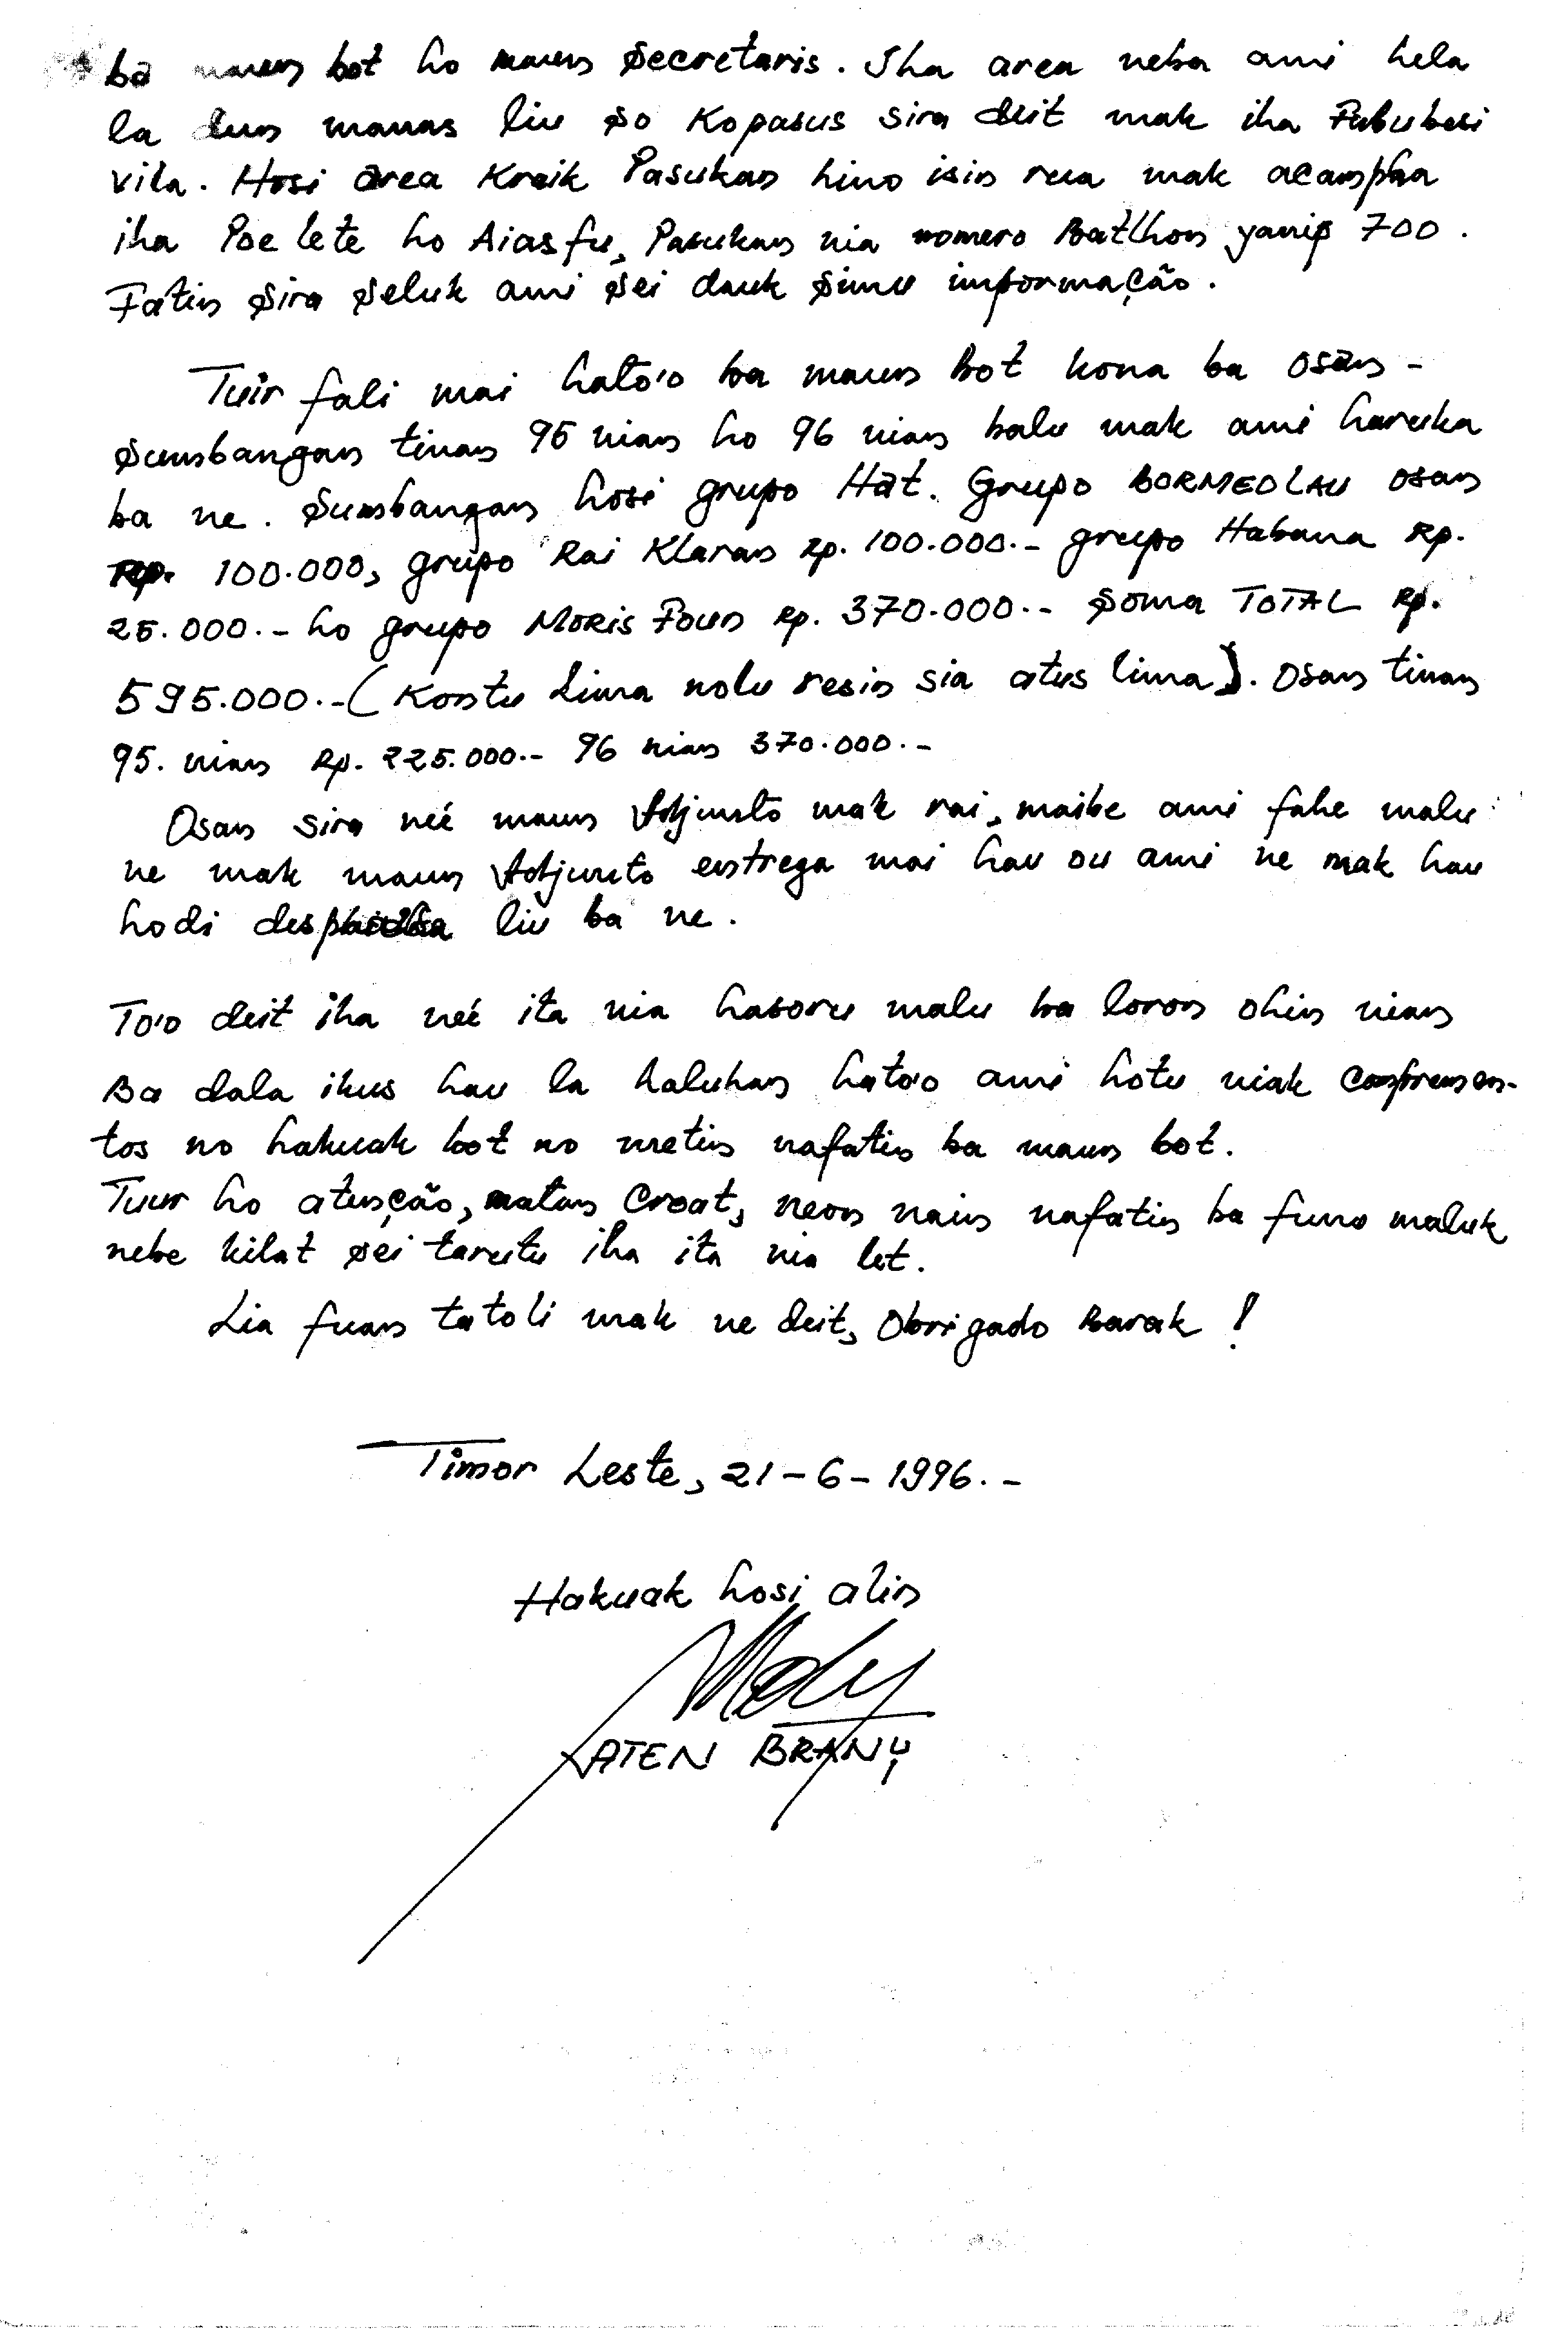 ba maun bot ho maun Secretaris. Iha area neba ami hela
la dun manas liu so Kopasus sira deit mak iha Fatubesi
vila. Hosi area Kraik Pasukan hino isin rua mak acampa
iha Poe lete ho Aiasfu, Pasukan nia nomero Batlhon yanip 700.
Fatin sira seluk ami sei dauk simu informação.
Tuir fali mai hato'o ba maun Bot kona ba osan-
sumbangan tinan 95 nian ho 96 nian balu mak ami haruka
ba ne. Sumbangan hosi grupo Hat. Grupo BORMEOLAU osan
Rp. 100.000, grupo Rai Klaran Rp. 100.000.- grupo Habana Rp.
25.000.- ho grupo MORIS Foun Rp. 370.000.- Soma TOTAL Rp.
595.000.- (Kontu Lima nolu resin sia atus lima). Osan tinan
95. nian Rp. 225.000.- 96 nian 370.000.-
Osan sira neé maun Adjunto mak rai, maibe ami fahe malu
ne mak maun Adjunto entrega mai hau ou ami ne mak hau
hodi liu ba ne.
To'o deit iha neé ita nia hasoru malu ba loron ohin nian
Ba dala ikus hau la haluhan hato'o ami hotu niak comprimen-
tos no hakuak bot no metin nafatin ba maun bot.
Tuur ho atenção, matan Croat, neon nain nafatin ba funo maluk
nebe kilat sei tarutu iha ita nia let.
Lia fuan tatoli mak ne deit, Obrigado Barak!
Timor Leste, 21-6-1996.-
Hakuak hosi alin
LATEN BRANY